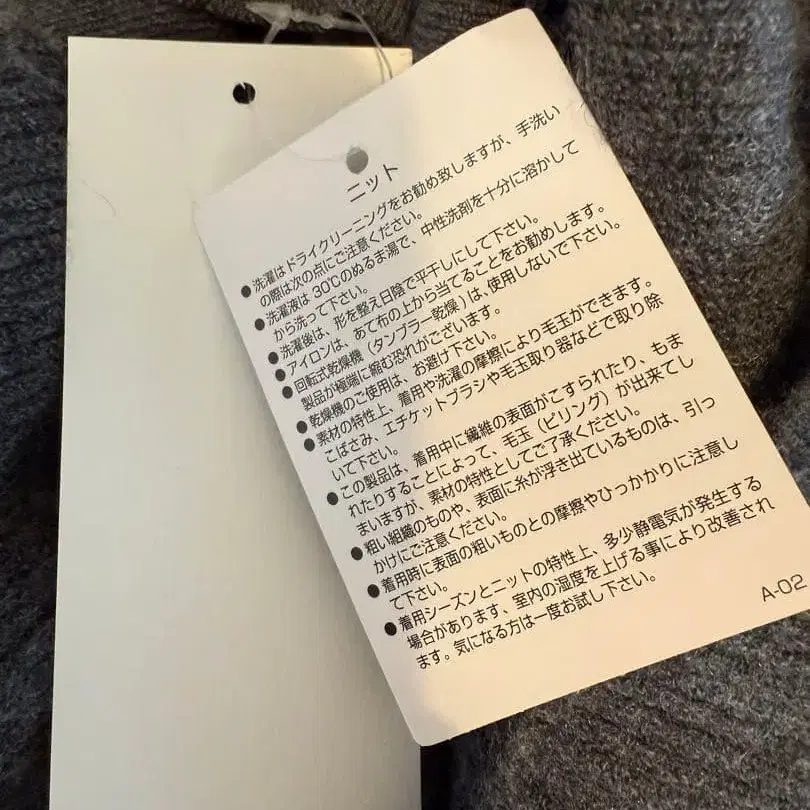 ニット
●洗濯はドライクリーニングをお勧め致しますが、手洗い
の際は次の点にご注意ください。
●洗濯液は30℃のぬるま湯で、中性洗剤を十分に溶かして
から洗って下さい。
●洗濯後は、形を整え日陰で平干しにして下さい。
●アイロンは、あて布の上から当てることをお勧めします。
●回転式乾燥機(タンブラー乾燥)は、使用しないで下さい。
製品が極端に縮む恐れがございます。
●乾燥機のご使用は、お避け下さい。
●素材の特性上、着用や洗濯の摩擦により毛玉ができます。
こばさみ、エチケットブラシや毛玉取り器などで取り除
いて下さい。
●この製品は、着用中に繊維の表面がこすられたり、もま
れたりすることによって、毛玉(ピリング)が出来てし
まいますが、素材の特性としてご了承ください。
●粗い組織のものや、表面に糸が浮き出ているものは、引っ
かけにご注意ください。
●着用時に表面の粗いものとの摩擦やひっかかりに注意し
て下さい。
●着用シーズンとニットの特性上、多少静電気が発生する
場合があります、室内の湿度を上げる事により改善され
ます。気になる方は一度お試し下さい。
A-02